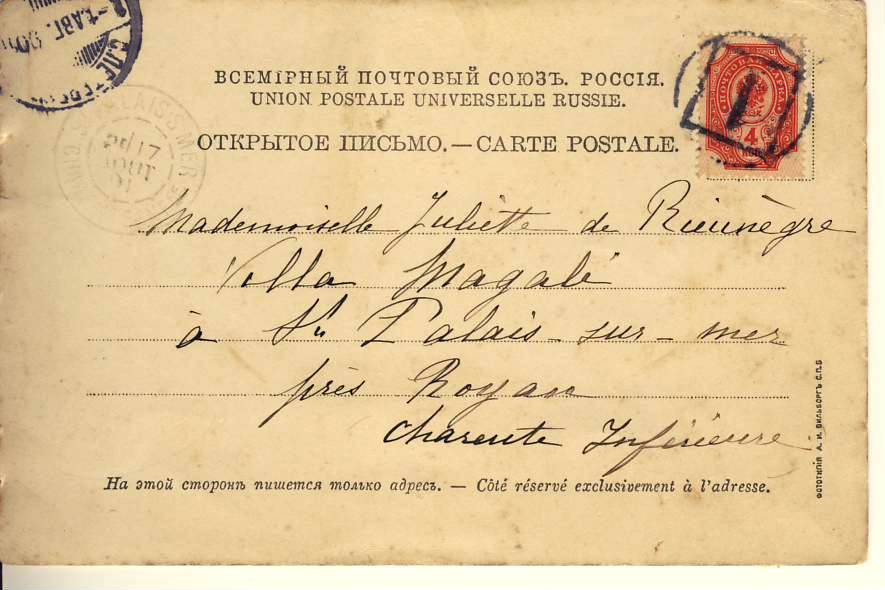 ВСЕМІРНЫЙ ПОЧТОВЫЙ СОЮЗЪ. РОССІЯ.
UNION POSTALE UNIVERSELLE RUSSIE.
ОТКРЫТОЕ ПИСЬМО.—CARTE POSTALE.
ПОЧТОВАЯ МАРКА
4
1
PALAIS S MER
17
AOUT
01
АВГ.
С.ПЕТ
Mademoiselle Juliette de Rieunègre
Villa Magali
à St Palais-sur-mer
près Royan
Charente Inférieure
На этой сторонѣ пишется только адресъ. — Côté réservé exclusivement à l'adresse.
ФОТОТИПІЯ А. И. ВИЛЬБОРГЪ С.П.Б